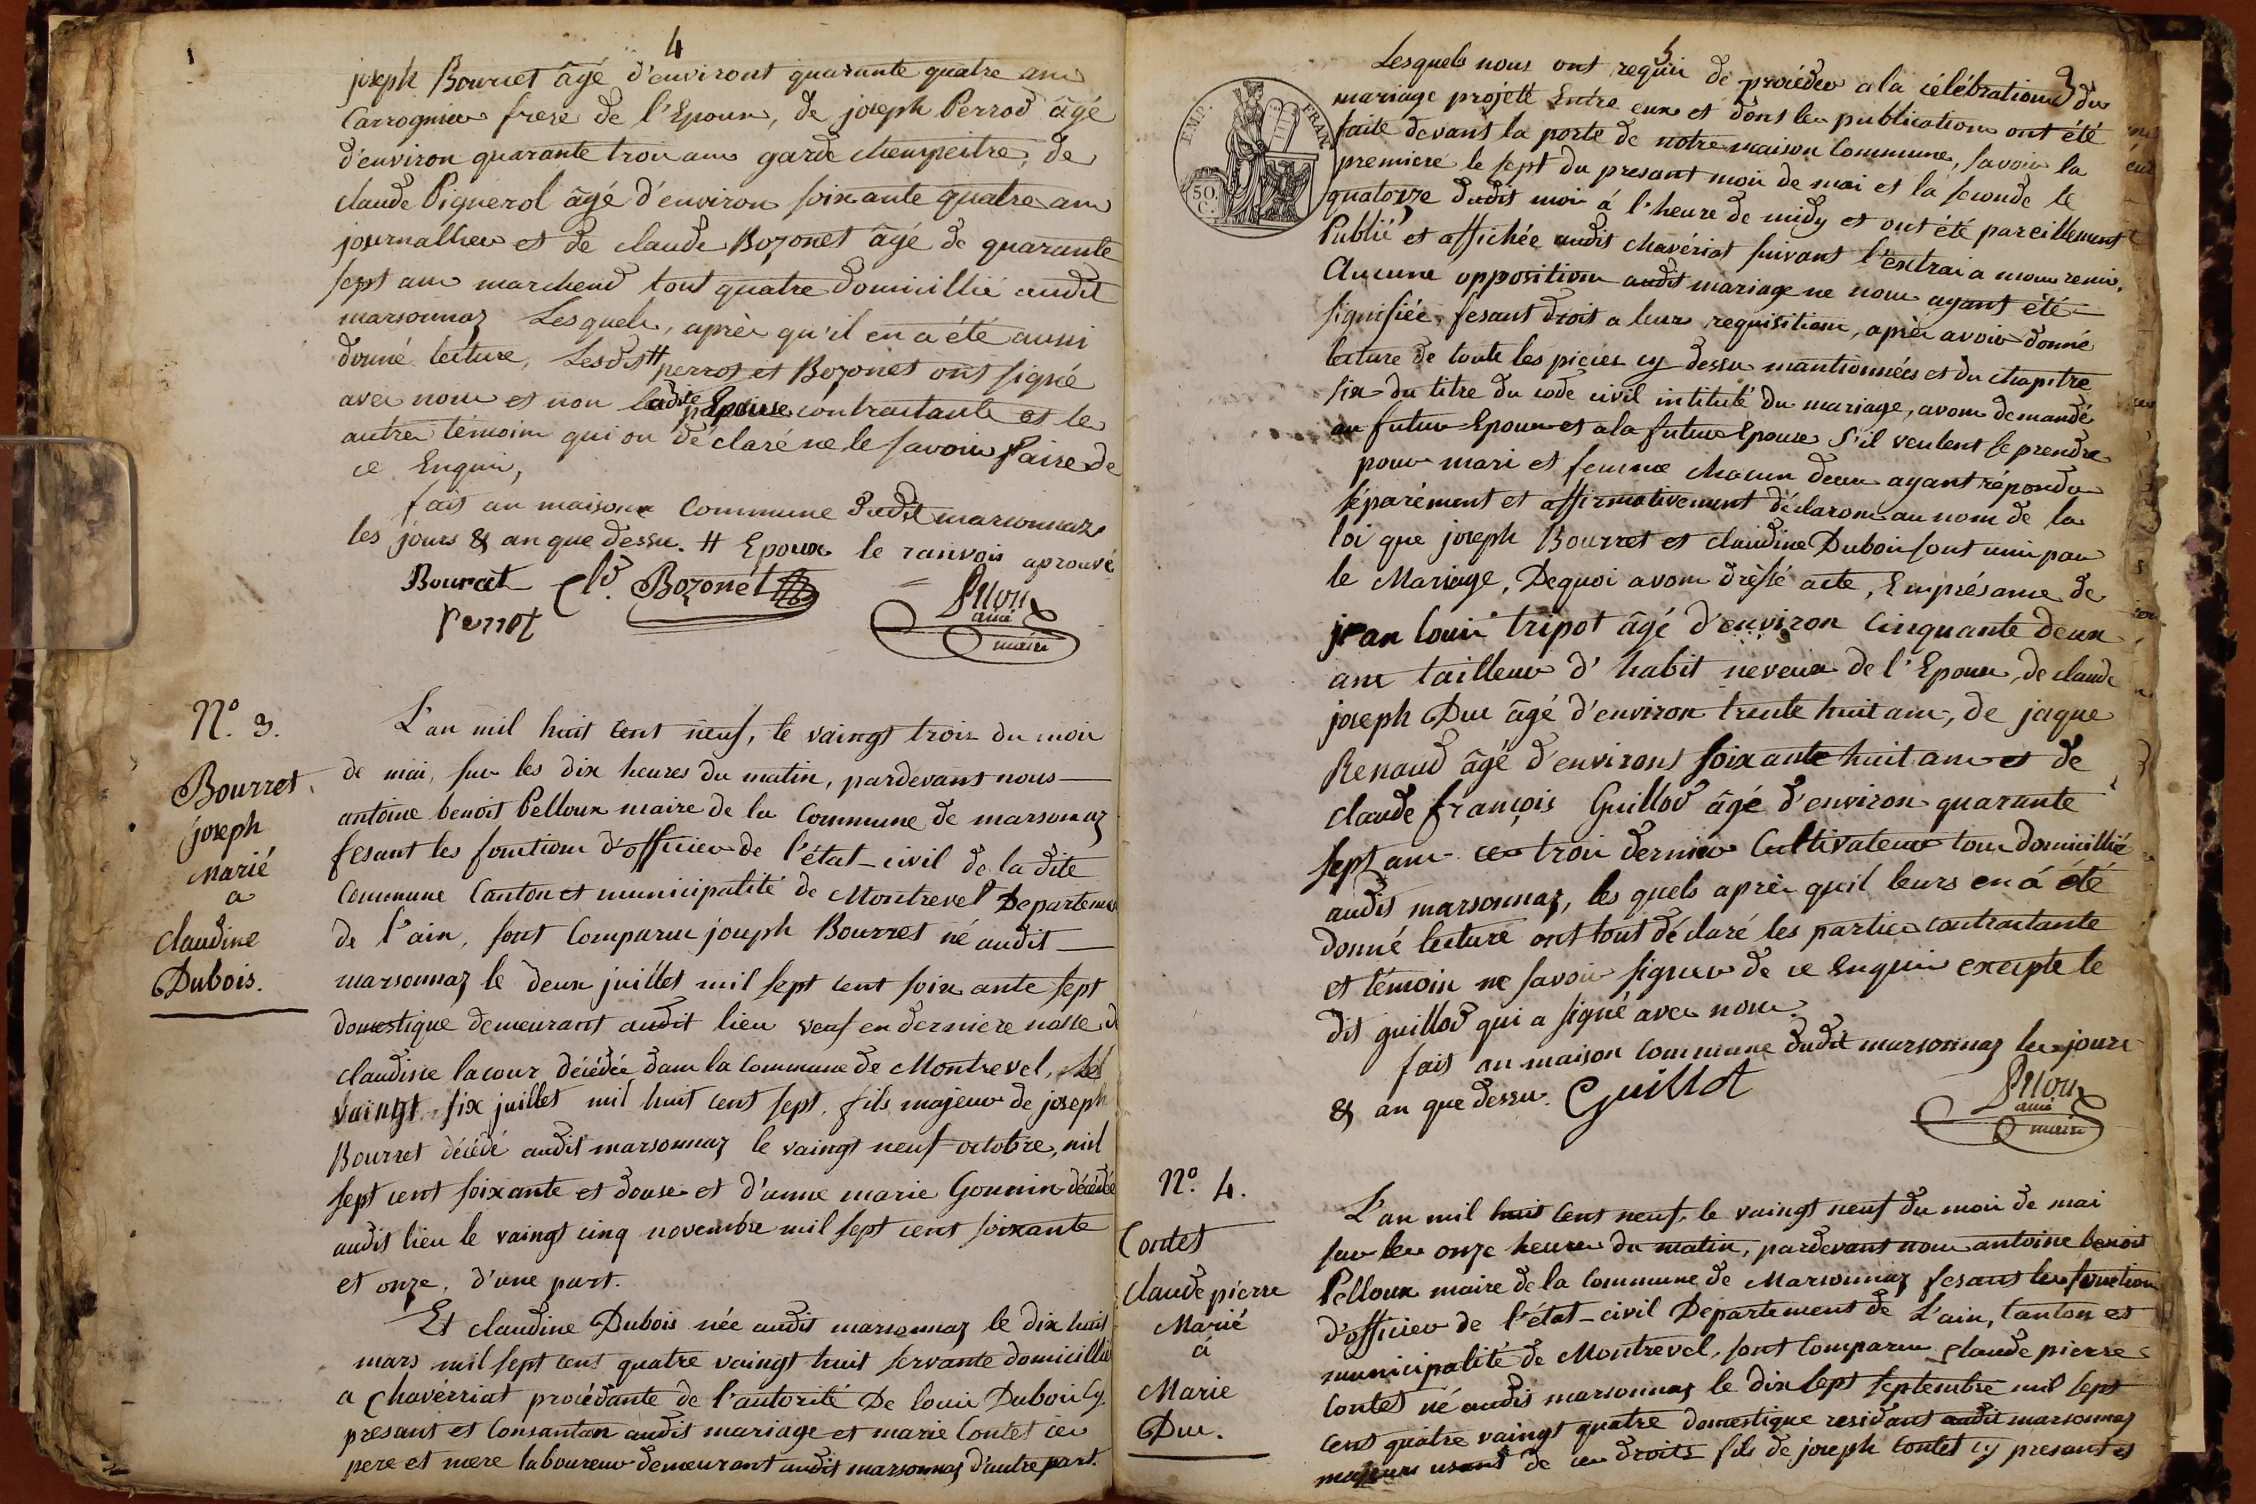 4
joseph Bourret âgé d'environt quarante quatre ans
Carrognier frere de l'Epoux, de joseph Perrod âgé
d'environ quarante trois ans garde chempeitre, de
claude Pignerol âgé d'environ soixante quatre ans
journallier et de claude Bozonet âgé de quarante
sept ans marchend tout quatre domicillié audit
marsonnaz Lesquels, après qu'il en a été aussi
donné lecture, Lesdit # perrot et Bozonet ont signé
avec nous et non ladite Epouse contractante et les
autres témoins qui on déclaré ne le savoir faire de
ce Enquis,
fait an maison Commune dudit marsonnaz
les jours & an que dessu. # Epoux le ranvois aprouvé
Bourret Cld. Bozonet
Perrot
ainé
maire
N.º 3.
Bourret
joseph
Marié
a
claudine
Dubois.
L'an mil huit cent neuf, le vaingt trois du mois
de mai, sur les dix heures du matin, pardevant nous
antoine benoit Pelloux maire de la Commune de marsonnaz
fesant les fonctions d'officier de l'état-civil de la dite
Commune Canton et municipalité de Montrevel Departement
de l'ain, sont Comparus joseph Bourret né audit
marsonnaz le deux juillet mil sept cent soixante sept
domestique demeurant audit lieu veuf en derniere nosse de
claudine lacour décédée dans la Commune de Montrevel, Le
vaingt six juillet mil huit cent sept, fils majeur de joseph
Bourret décédé audit marsonnaz le vaingt neuf octobre, mil
sept cent soixante et douse et d'anne marie Gonnin décédée
audit lieu le vaingt cinq novembre mil sept cent soixante
et onze, d'une part.
Et claudine Dubois née audit marsonnaz le dix huit
mars mil sept cent quatre vaingt huit servante domicillié
a Chavérriat procédante de l'autorité De louis Dubois Cy
presant et Consantan audit mariage et marie Contet ces
pere et mere laboureur demeurant audit marsonnaz d'autre part.
5
3
EMP. FRAN.
50
C.
Lesquels nous ont requis de procéder a la célébration du
mariage projeté Entre eux et dont les publications ont été
faite devant la porte de notre maison Commune, savoir la
premiere le sept du presant mois de mai et la seconde le
quatorze dudit mois á l'heure de midy et ont été pareillement
Publié et affichée audit chavériat suivant l'extrai a nous remis,
Aucune opposition audit mariage ne nous ayant été
signifiée, fesant droit a leurs requisitions, après avoir donné
lecture de toute les pieces cy dessu mantionnées et du chapitre
six du titre du code civil intitulé du mariage, avons demandé
au futur Epoux et a la future Epouse s'il veulent se prendre
pour mari et femme chacun deux ayant répondu
séparément et affirmativement déclarons au nom de la
loi que joseph Bourret et claudine Dubois sont unis par
le Mariage, De quoi avons dréssé acte, En présance de
jean louis tripot âgé d'environ Cinquante deux
ans tailleur d'habit neveux de l'Epoux, de claude
joseph Duc âgé d'environ trente huit ans, de jaque
Renaud âgé d'environt soixante huit ans et de
claude françois Guillod âgé d'environ quarante
sept ans ces trois dernier Cultivateur tous domicillié
audit marsonnaz, les quels après quil leurs en á été
donné lecture ont tout déclaré les parties contractante
et témoin ne savoir signer de ce Enquis excepte le
dit guillod qui a signé avec nous.
fait an maison Commune dudit marsonnaz les jours
& an que dessu. Guillot
ainé
maire
N.º 4.
Contet
claude pierre
Marié
á
Marie
Duc.
L'an mil huit cent neuf, le vaingt neuf du mois de mai
sur les onze heures du matin, pardevant nous antoine benoit
Pelloux maire de la Commune de Marsonnaz fesant les fonctions
d'officier de l'état-civil Departement de L'ain, Canton et
municipalité de Montrevel, sont Comparus claude pierre
Contet né audit marsonnaz le dix sept septembre mil sept
cent quatre vaingt quatre domestique residant audit marsonnaz
majeurs usant de ces droits fils de joseph Contet cy presant et